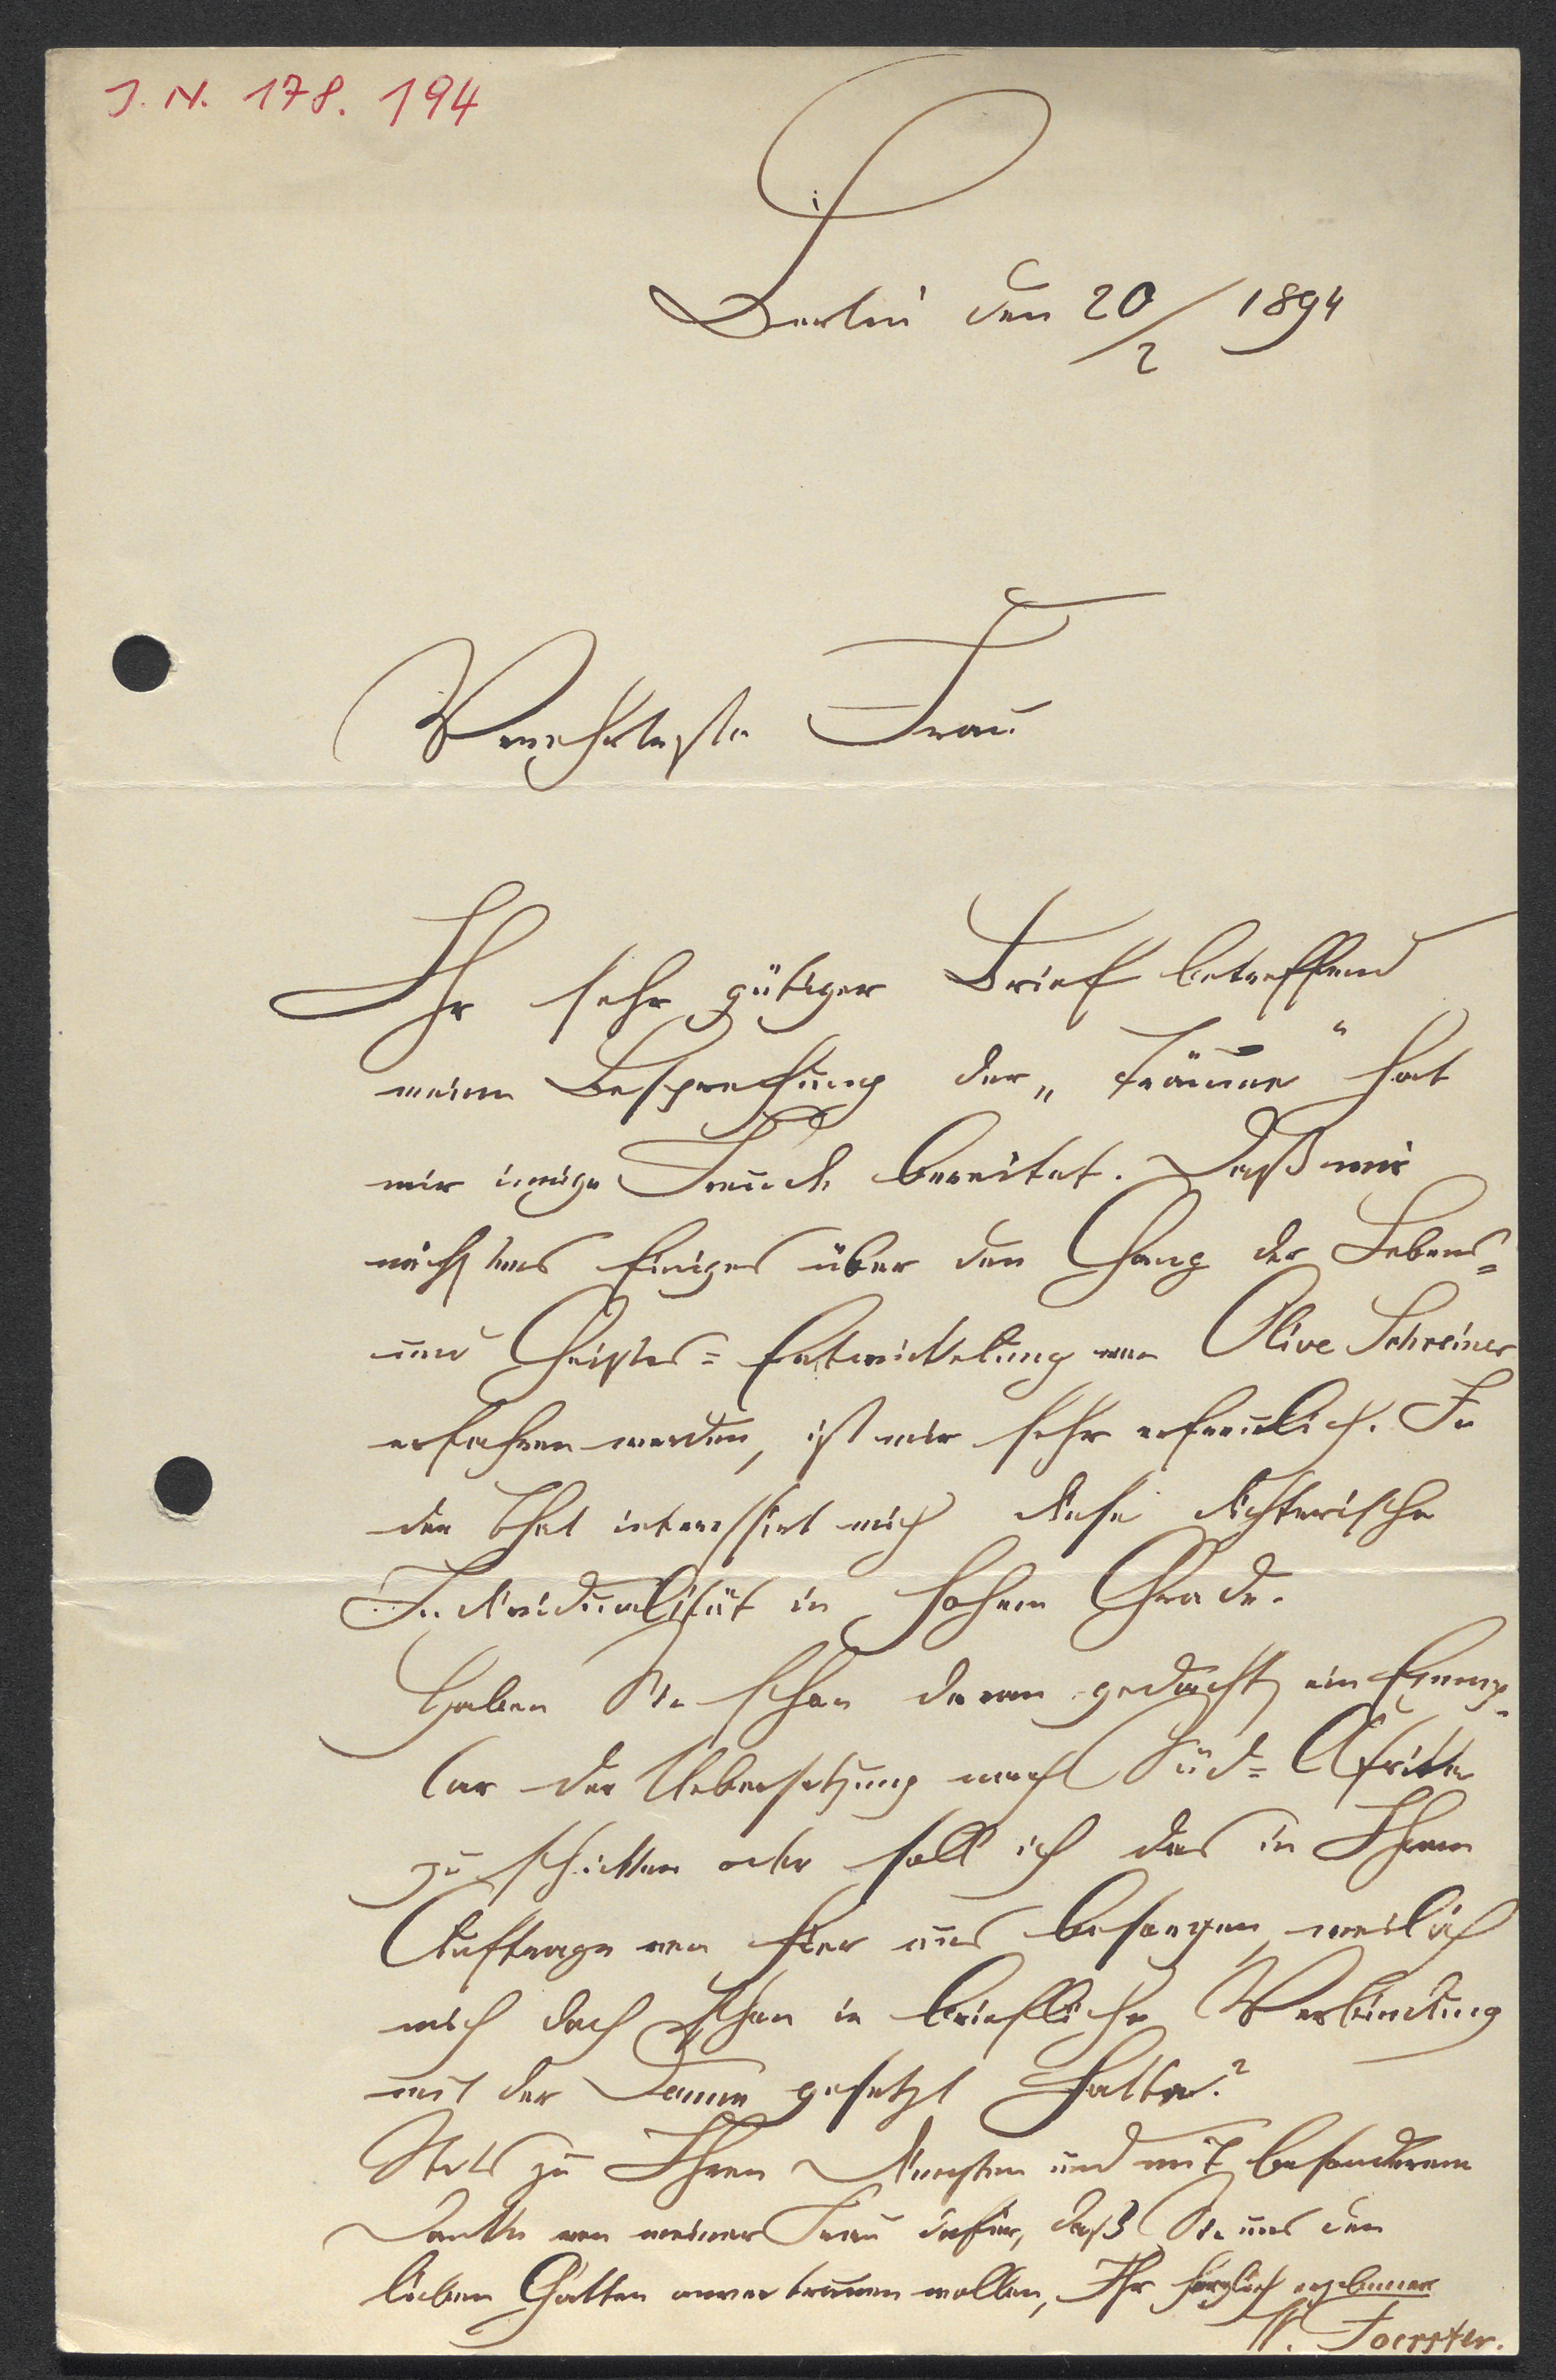 J. N. 178. 194
Berlin den 20/2 1894
Verehrteste Frau
Ihr sehr gütiger Brief betreffend
meine Besprechung der „Träume“ hat
mir innige Freude bereitet. Daß wir
nächstens Einiges über den Gang der Lebens=
und Geistes=Entwickelung von Olive Schreiner
erfahren werden, ist mir sehr erfreulich. In
der That interessirt mich diese dichterische
Individualität in hohem Grade.
Haben Sie schon daran gedacht, ein Exemp-
lar der Uebersetzung nach Süd=Afrika
zu schicken oder soll ich das in Ihrem
Auftrage von hier aus besorgen, weil ich
mich doch schon in briefliche Verbindung
mit der Dame gesetzt hatte?
Stets zu Ihren Diensten und mit besonderem
Danke von meiner Frau dafür, daß Sie uns den
lieben Gatten anvertrauen wollen, Ihr herzlich ergebener
W. Foerster.